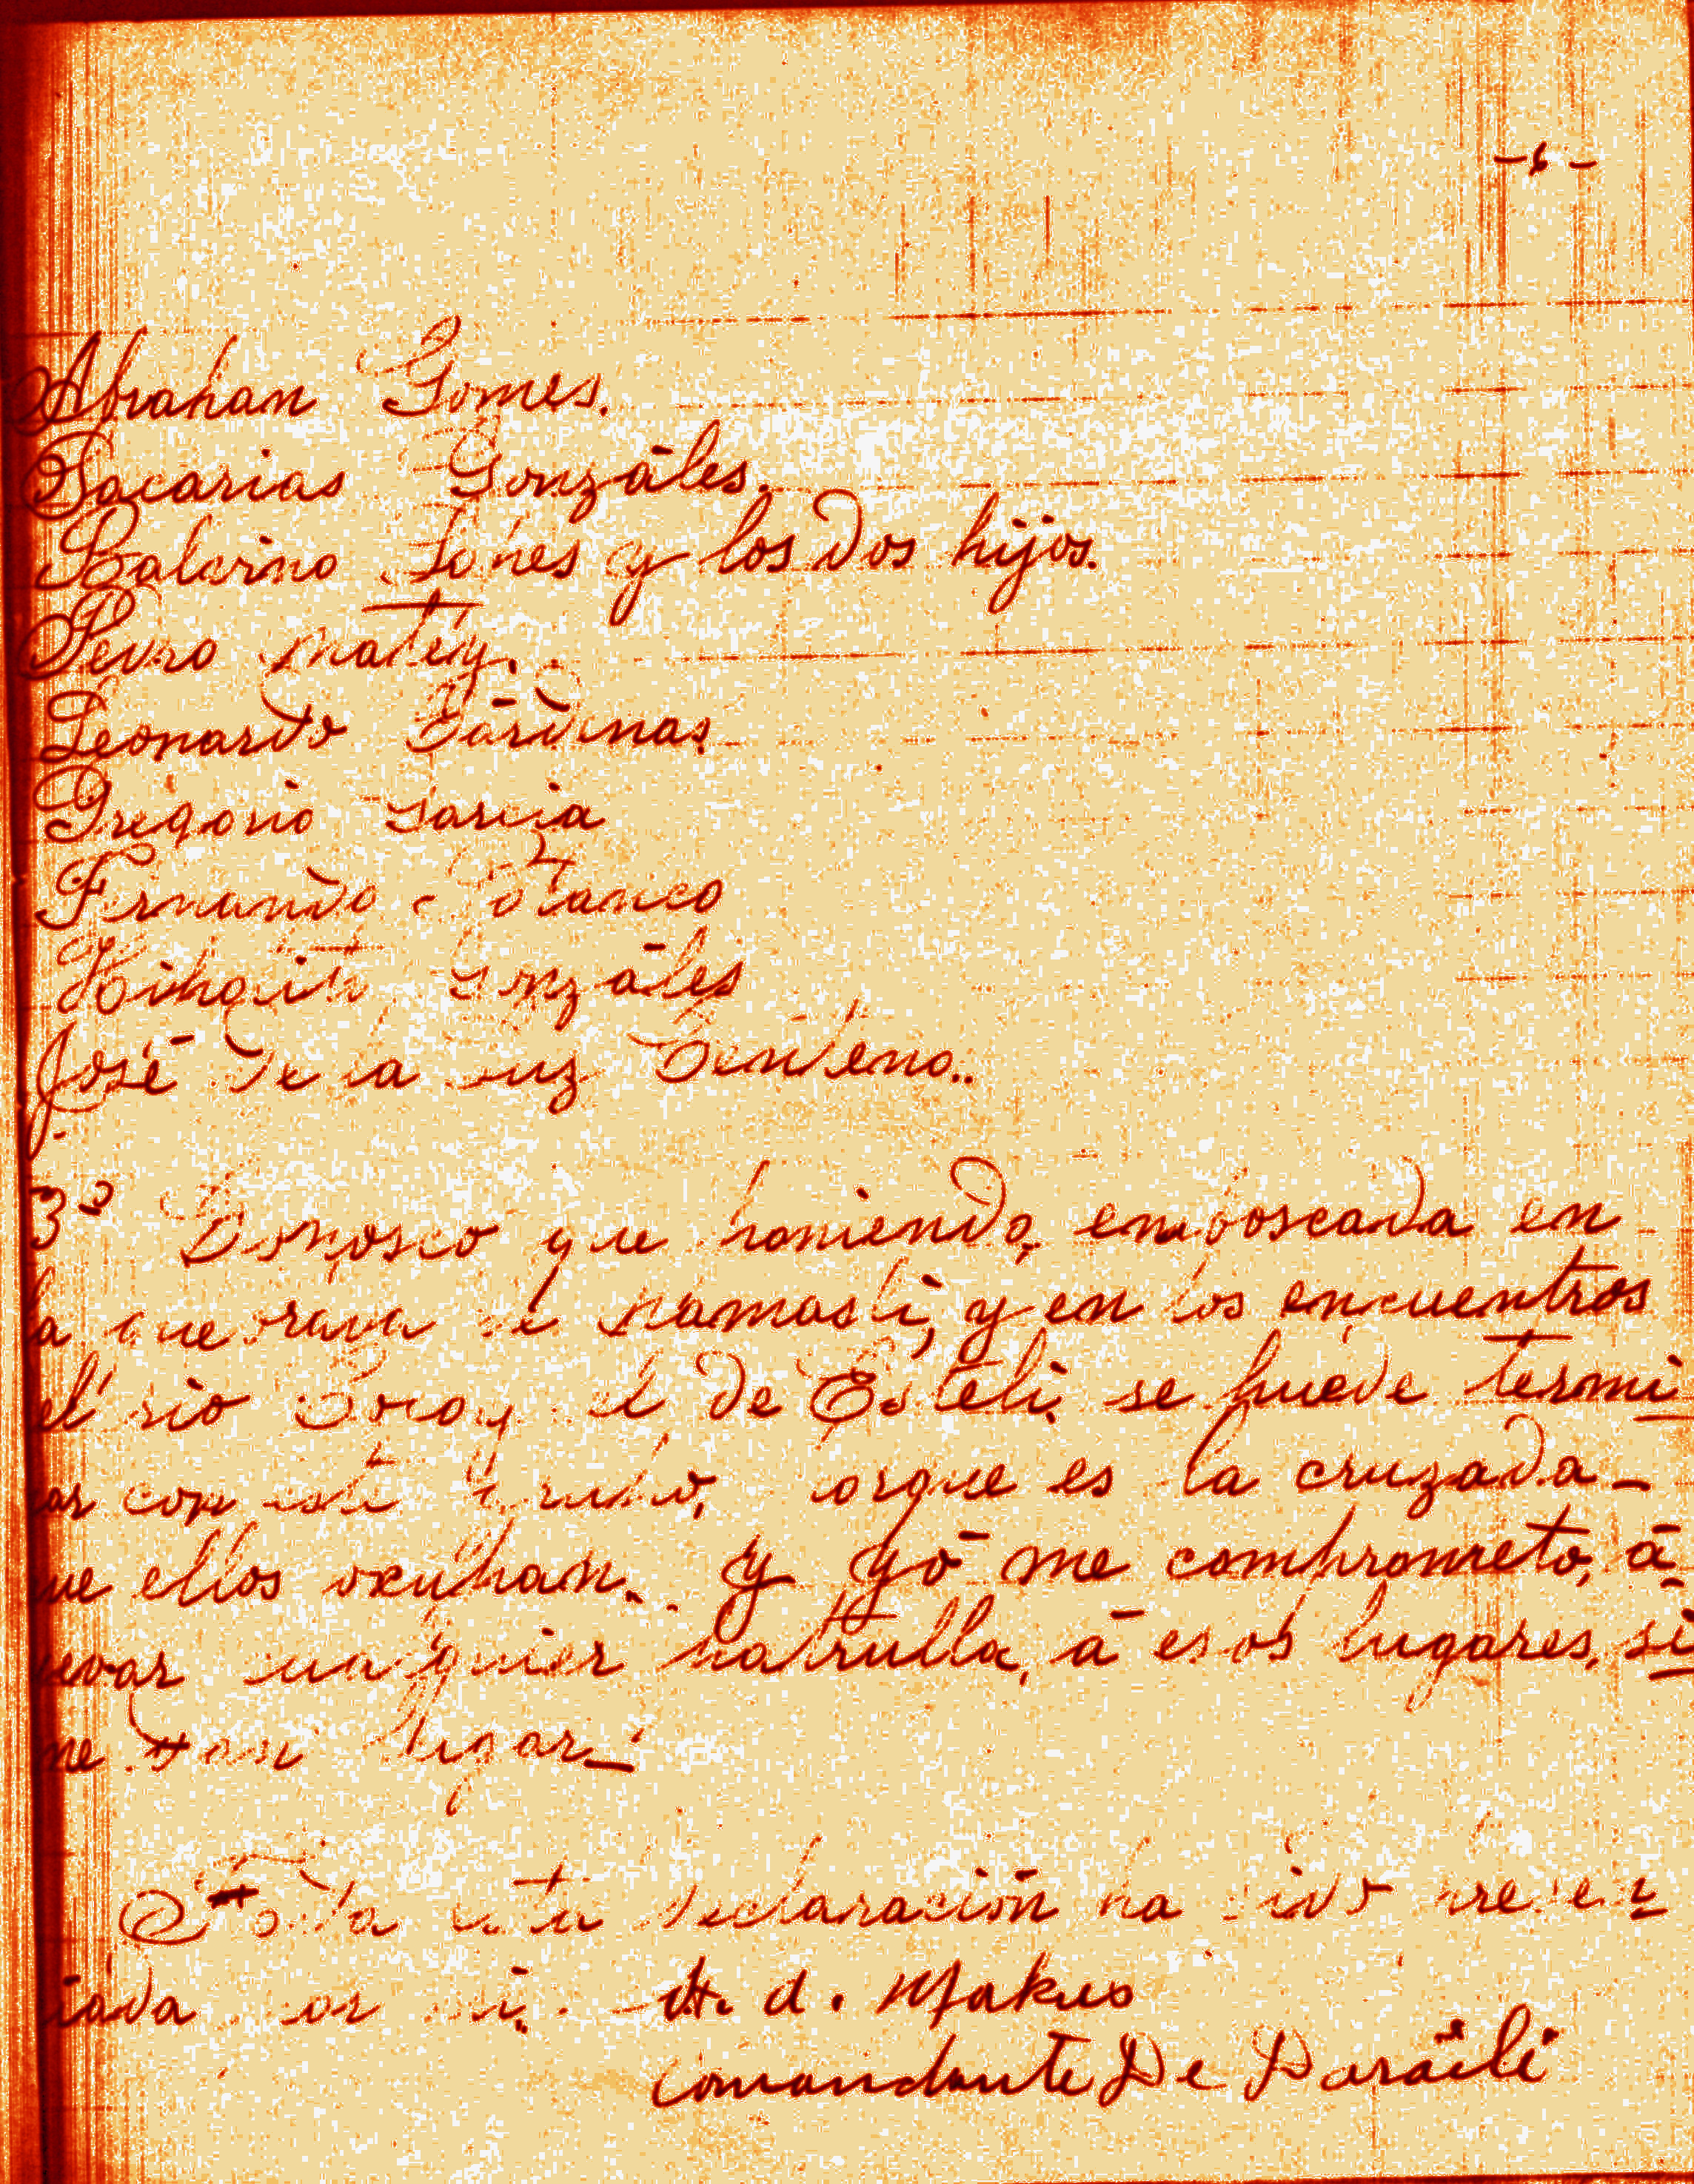 -6-
Abrahan Gomes.
Sacarias Gonzáles.
y los dos hijos.
Pedro Matey.
Leonardo Cárdenas
Gregorio Garcia
Fernando Polanco
Gonzáles
José de la Luz Centeno..
3º Conosco que poniendo, emboscada en
la quebrada de Namasli, y en los encuentros
el rio Coco y el de Esteli. se puede termi
ar con este grupo, porque es la cruzada-
ue ellos ocupan. y yó me comprometo, á
evar cualquier patrulla, á esos lugares, si
me dan lugar.-
Toda esta declaración ha sido presen
iada por mi. A. d. Makues
Comandante De Daraili